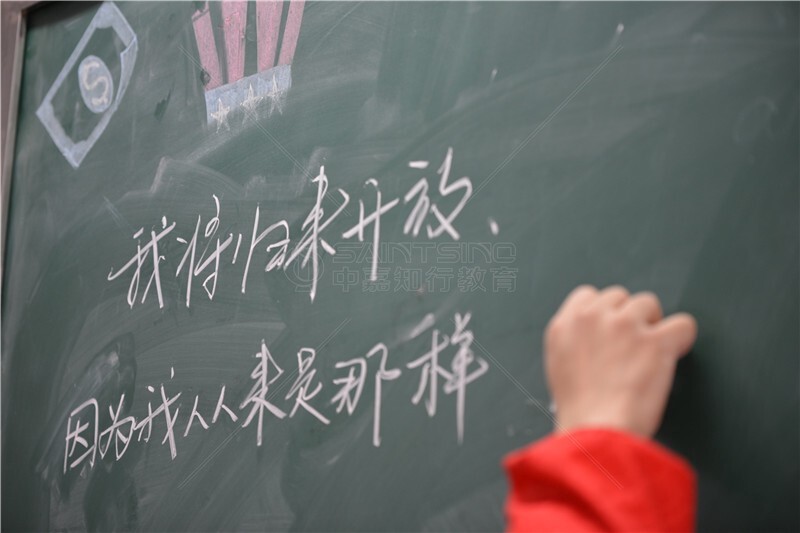 S
我将归来开放、
SAINTSINO
中嘉知行教育
因为我从来是那样